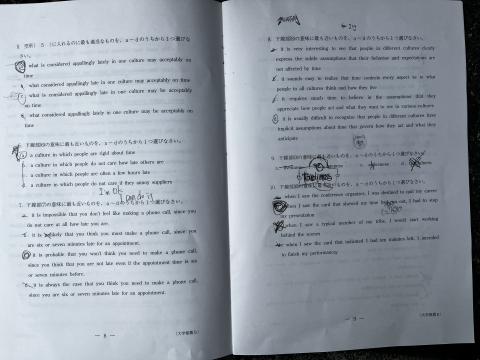 5 空所( 5 )に入れるのに最も適当なものを、a～dのうちから1つ選びなさい。
what is considered appallingly lately in one culture may acceptably on
time
what considered appallingly late in one culture may acceptably on time
what is considered appallingly late in one culture may be acceptably
on time
what considered appallingly lately in one culture may be acceptably on
time
下線部(6)の意味に最も近いものを、a～dのうちから1つ選びなさい。
a culture in which people are right about time
a culture in which people do not care how late others are
a culture in which people are often a few hours late
a culture in which people do not care if they annoy suppliers
7. 下線部(7)の意味に最も近いものを、a～dのうちから1つ選びなさい。
a. it is impossible that you don't feel like making a phone call, since you
do not care at all how late you are.
it is likely that you think you must make a phone call, since you
are six or seven minutes late for an appointment.
it is probable that you won't think you need to make a phone call,
since you think that you are not late even if the appointment time is six
or seven minutes before.
it is always the case that you think you need to make a phone call,
since you are six or seven minutes late for an appointment.
— 8 —
8. 下線部(8)の意味に最も近いものを、a～dのうちから1つ選びなさい。
it is very interesting to see that people in different cultures clearly
express the subtle assumptions that their behavior and expectations are
not affected by time
it sounds easy to realize that time controls every aspect as to what
people in all cultures think and how they live
it requires much time to believe in the assumptions that they
appreciate how people act and what they want to see in various cultures
it is usually difficult to recognize that people in different cultures have
implicit assumptions about time that govern how they act and what they
anticipate
9.
10. 下線部(10)の意味に最も近いものを、a～dのうちから1つ選びなさい。
when I saw the conference organizer, I was destined to quit my career
when I saw the card that showed my time had run out, I had to stop
my presentation
when I saw a typical member of my tribe, I would start working
behind the scenes
when I saw the card that indicated I had ten minutes left, I intended
to finish my performance
— 9 —